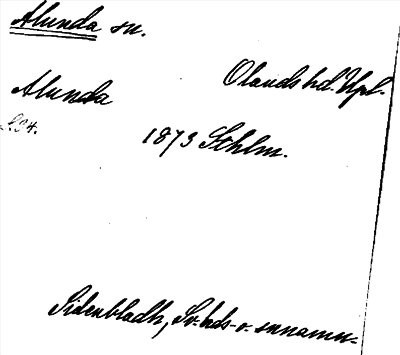 Alunda sn.
Olands hd. Upl.
Alunda
s. 24.
1873 Sthlm.
Sidenbladh, Sv. hds- o. snnamn.